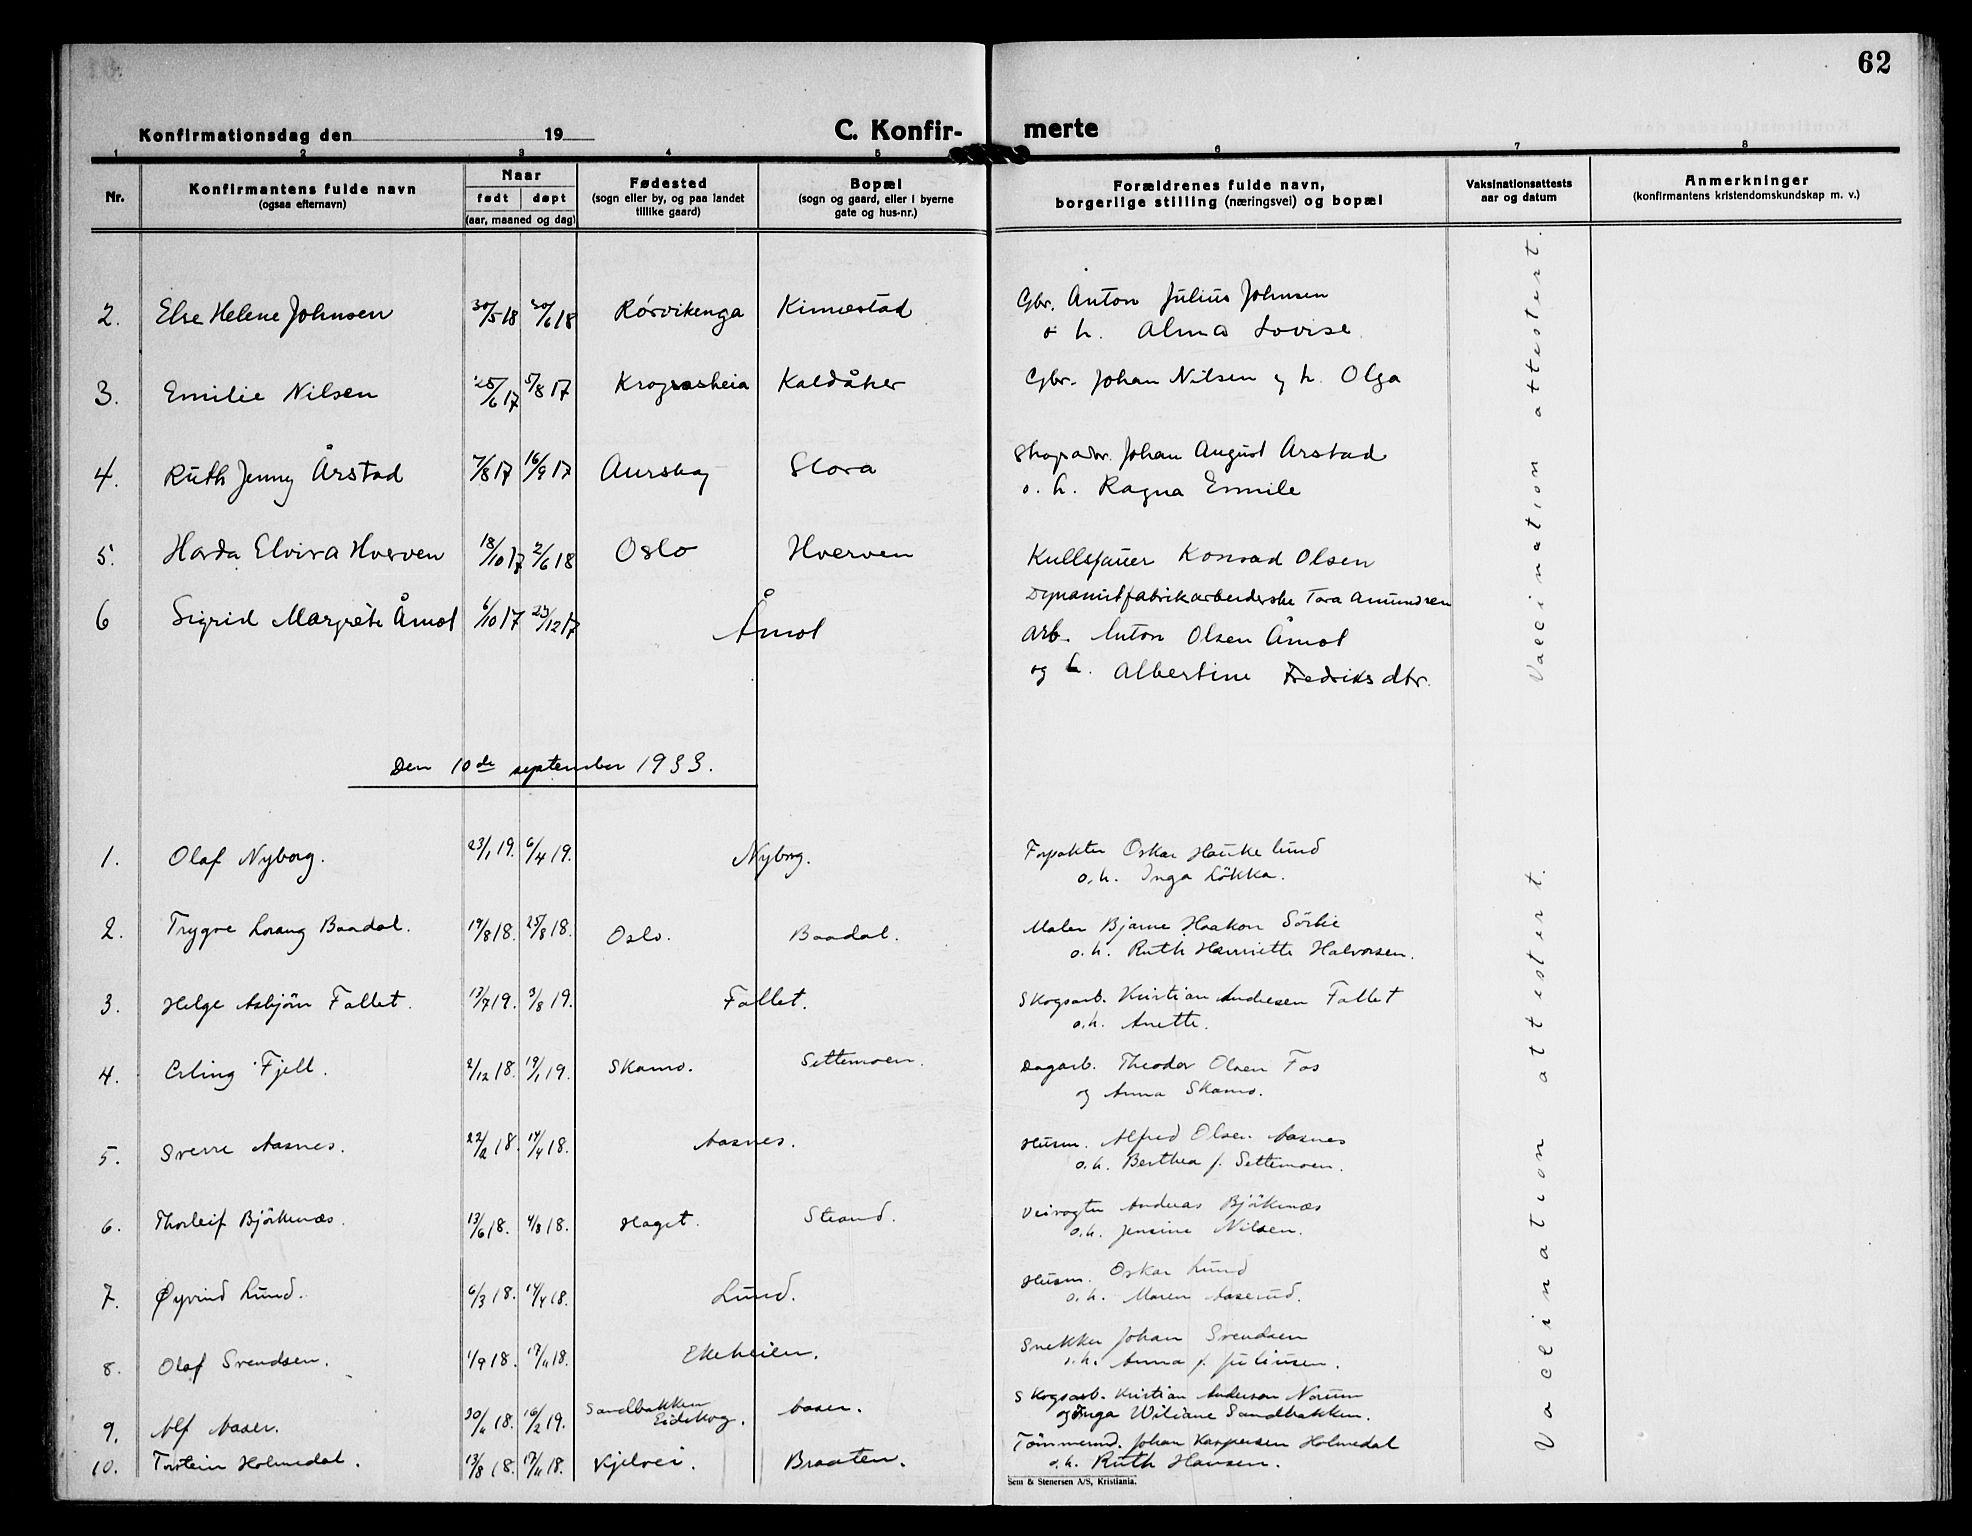 62
Konfirmationsdag den 19
C. Konfir- merte
1 2 3 4 5 6 7 8
Nr.
Konfirmantens fulde navn
(ogsaa efternavn)
Naar
født døpt
(aar, maaned og dag)
Fødested
(sogn eller by, og paa landet
tillike gaard)
Bopæl
(sogn og gaard, eller i byerne
gate og hus-nr.)
Forældrenes fulde navn,
borgerlige stilling (næringsvei) og bopæl
Vaksinationsattests
aar og datum
Anmerkninger
(konfirmantens kristendomskundskap m. v.)
Vaccination attestert.
2. Else Helene Johnsen 30/5 18 30/6 18 Rørvikenga Kinnestad Gbr. Anton Julius Johnsen
o h. Alma Lovise
3. Emilie Nilsen 25/6 17 5/8 17 Krogsasheia Kaldåker Gbr. Johan Nilsen og h. Olga
4. Ruth Jenny Årstad 7/8 17 16/9 17 Aurskog Slora Skogsarb. Johan August Årstad
o. h. Ragna Emilie
5. Harda Elvira Hverven 18/10 17 2/6 18 Oslo Hverven Kullsjauer Konrad Olsen
Dynamitfabrikarbeiderske Tora Amundsen
6 Sigrid Margrete Åmot 6/10 17 23/12 17 Åmot Arb. Anton Olsen Åmot
og h. Albertine Fredriksdtr.
Den 10de september 1933.
Vaccination attestert.
1. Olaf Nyborg. 23/1 19. 6/4 19. Nyborg. Forpakter Oskar Haukelund
o. h. Inga Løkka.
2. Trygve Lorang Baadal. 19/8 18. 25/8 18. Oslo. Baadal. Maler Bjarne Haakon Sørlie
o. h. Ruth Harriette Halvorsen.
3. Helge Asbjørn Fallet. 13/7 19. 3/8 19. Fallet. Skogsarb. Kristian Andresen Fallet
o. h. Anette.
4. Erling Fjell. 2/12 18. 19/1 19. Skamo. Settemoen. Dagarb. Theodor Olsen Fos
og Anna Skamo.
5. Sverre Aasnes. 22/2 18. 14/4 18. Aasnes. Husm. Alfred Olsen Aasnes
o. h. Berthea f. Settemoen.
6. Thorleif Bjørkenæs. 13/6 18. 4/8 18. Haget. Strand. Veivogter Andreas Bjørkenæs
o. h. Jensine Nilsen.
7. Øyvind Lund. 6/3 18. 14/4 18. Lund. Husm. Oskar Lund
o. h. Maren Aaserud.
8. Olaf Svendsen. 1/9 18. 17/11 18. Ekeheien. Snekker Johan Svendsen
o. h. Anna f. Juliusen.
9. Alf Aaser. 30/11 18. 16/2 19. Sandbakken
Eidskog. Aaser. Skogsarb. Kristian Anderson Norum
og Inga Wiliane Sandbakken.
10. Torstein Holmedal. 13/8 18. 17/11 18. Kjelvei. Braaten. Tømmermd. Johan Kaspersen Holmedal
o. h. Ruth Hansen.
Sem & Stenersen A/S, Kristiania.